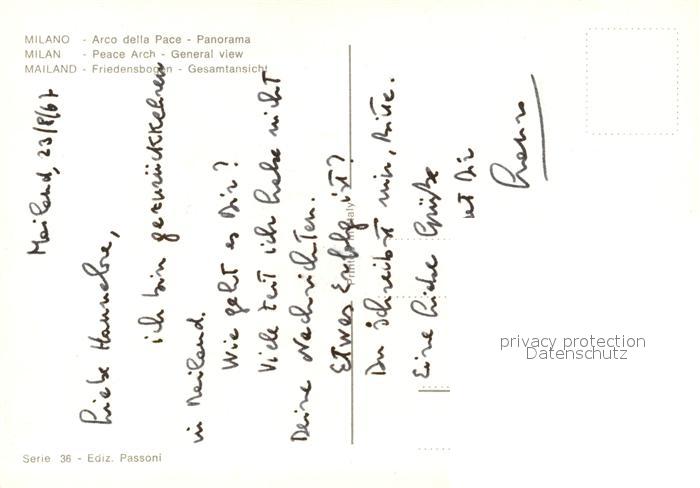 MILANO - Arco della Pace - Panorama
MILAN - Peace Arch - General view
MAILAND - Friedensbogen - Gesamtansicht
Mailand, 23/8/67
Liebe Hannelore,
ich bin gezurückkehren
in Mailand.
Wie geht es Dir?
Viele Zeit ich habe nicht
Deine Nachrichten.
Etwas Erfolg ist?
Du schreibst mir, Bitte.
Eine liebe Grüße
Dir
Printed in Italy
Serie 36 - Ediz. Passoni
privacy protection
Datenschutz